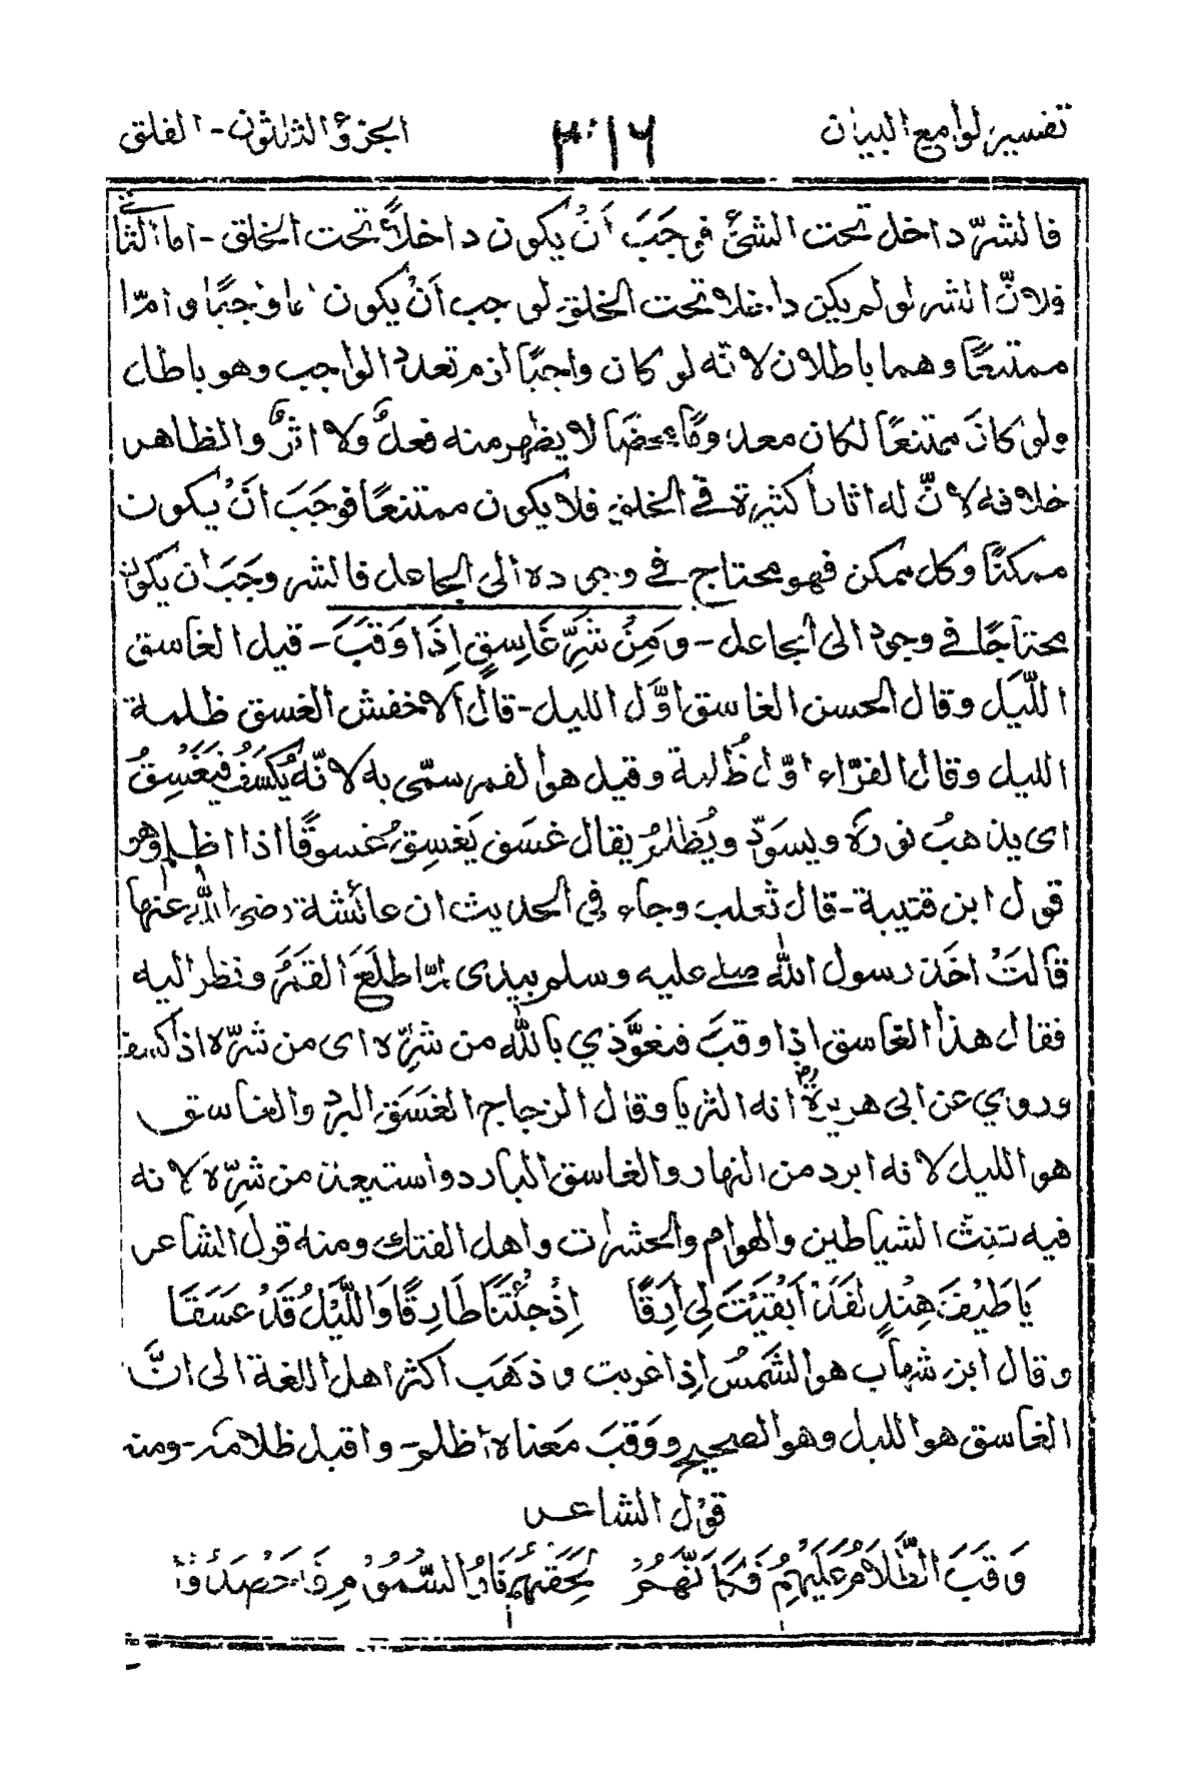 تفسير لوامع البيان ٣٠١٦ الجزؤ الثلثون - الفلق
فالشرّ داخل تحت الشئ فوجَبَ أنْ يكون داخلاً تحت الخلق - اما الثا
فلانّ الشر لو لم يكن داخلا تحت الخلق لوجب أنْ يكون اما واجبًا وامّا
ممتنعًا وهما باطلان لانّه لو كان واجبًا لزم تعدد الواجب وهو باطل
ولو كانَ ممتنعًا لكان معدومًا محضًا لا يظهر منه فعلٌ ولا اثرٌ والظاهر
خلافه لانّ له اثارا كثيرة في الخلق فلا يكون ممتنعًا فوجَبَ انْ يكون
ممكنًا وكل ممكن فهو محتاج في وجوده الى الجاعل فالشر وجَبَ ان يكون
محتاجًا في وجوده الى الجاعل - وَمِنْ شَرِّ غَاسِقٍ إِذَا وَقَبَ - قيل الغاسق
اللّيل وقال الحسن الغاسق اوّل الليل - قال الاخفش الغسق ظلمة
الليل وقال الفرّاء اوّل ظُلمة وقيل هو القمر سمّى به لانّه يُكسَفُ فيَغْسِقُ
اى يذهبُ نوره ويسوَدّ ويُظلمُ يقال غسَق يَغسِقُ غسوقًا اذا اظلم وهو
قول ابن قتيبة - قال ثعلب وجاء في الحديث ان عائشة رضي الله عنها
قالتْ اخذ رسول الله صلے عليه وسلم بيدى لمّا طلَعَ القمَرُ ونظر اليه
فقال هذا الغاسق اذا وقبَ فتعوَّذي بالله من شرِّه اى من شرّه اذا كسف
وروي عن ابى هريرةؓ انه الثريا وقال الزجاج الغسَقُ البرد والغاسق
هو الليل لانه ابرد من النهار والغاسق البارد واستيعذ من شرِّه لانه
فيه تنبثّ الشياطين والهوام والحشرات واهل الفتك ومنه قول الشاعر
يَا طَيْفَ هِنْدٍ لَقَدْ أَبْقَيْتَ لِي أَرَقًا إِذْ جِئْتَنَا طَارِقًا وَاللَّيْلُ قَدْ غَسَقَا
وقال ابن شهاب هو الشَمسُ إذا غربت وذهَبَ اكثر اهل اللغة الى انَّ
الغاسق هو الليل وهو الصحيح ووَقبَ مَعناه اظلم - واقبل ظلامه - ومنه
قول الشاعر
وَقَبَ الظَّلَامُ عَلَيْهِمُ فَكَأَنَّهُمْ لَحِقَتْهُمُ نَارُ السَّمُومِ فَأُحْصِدُوْا